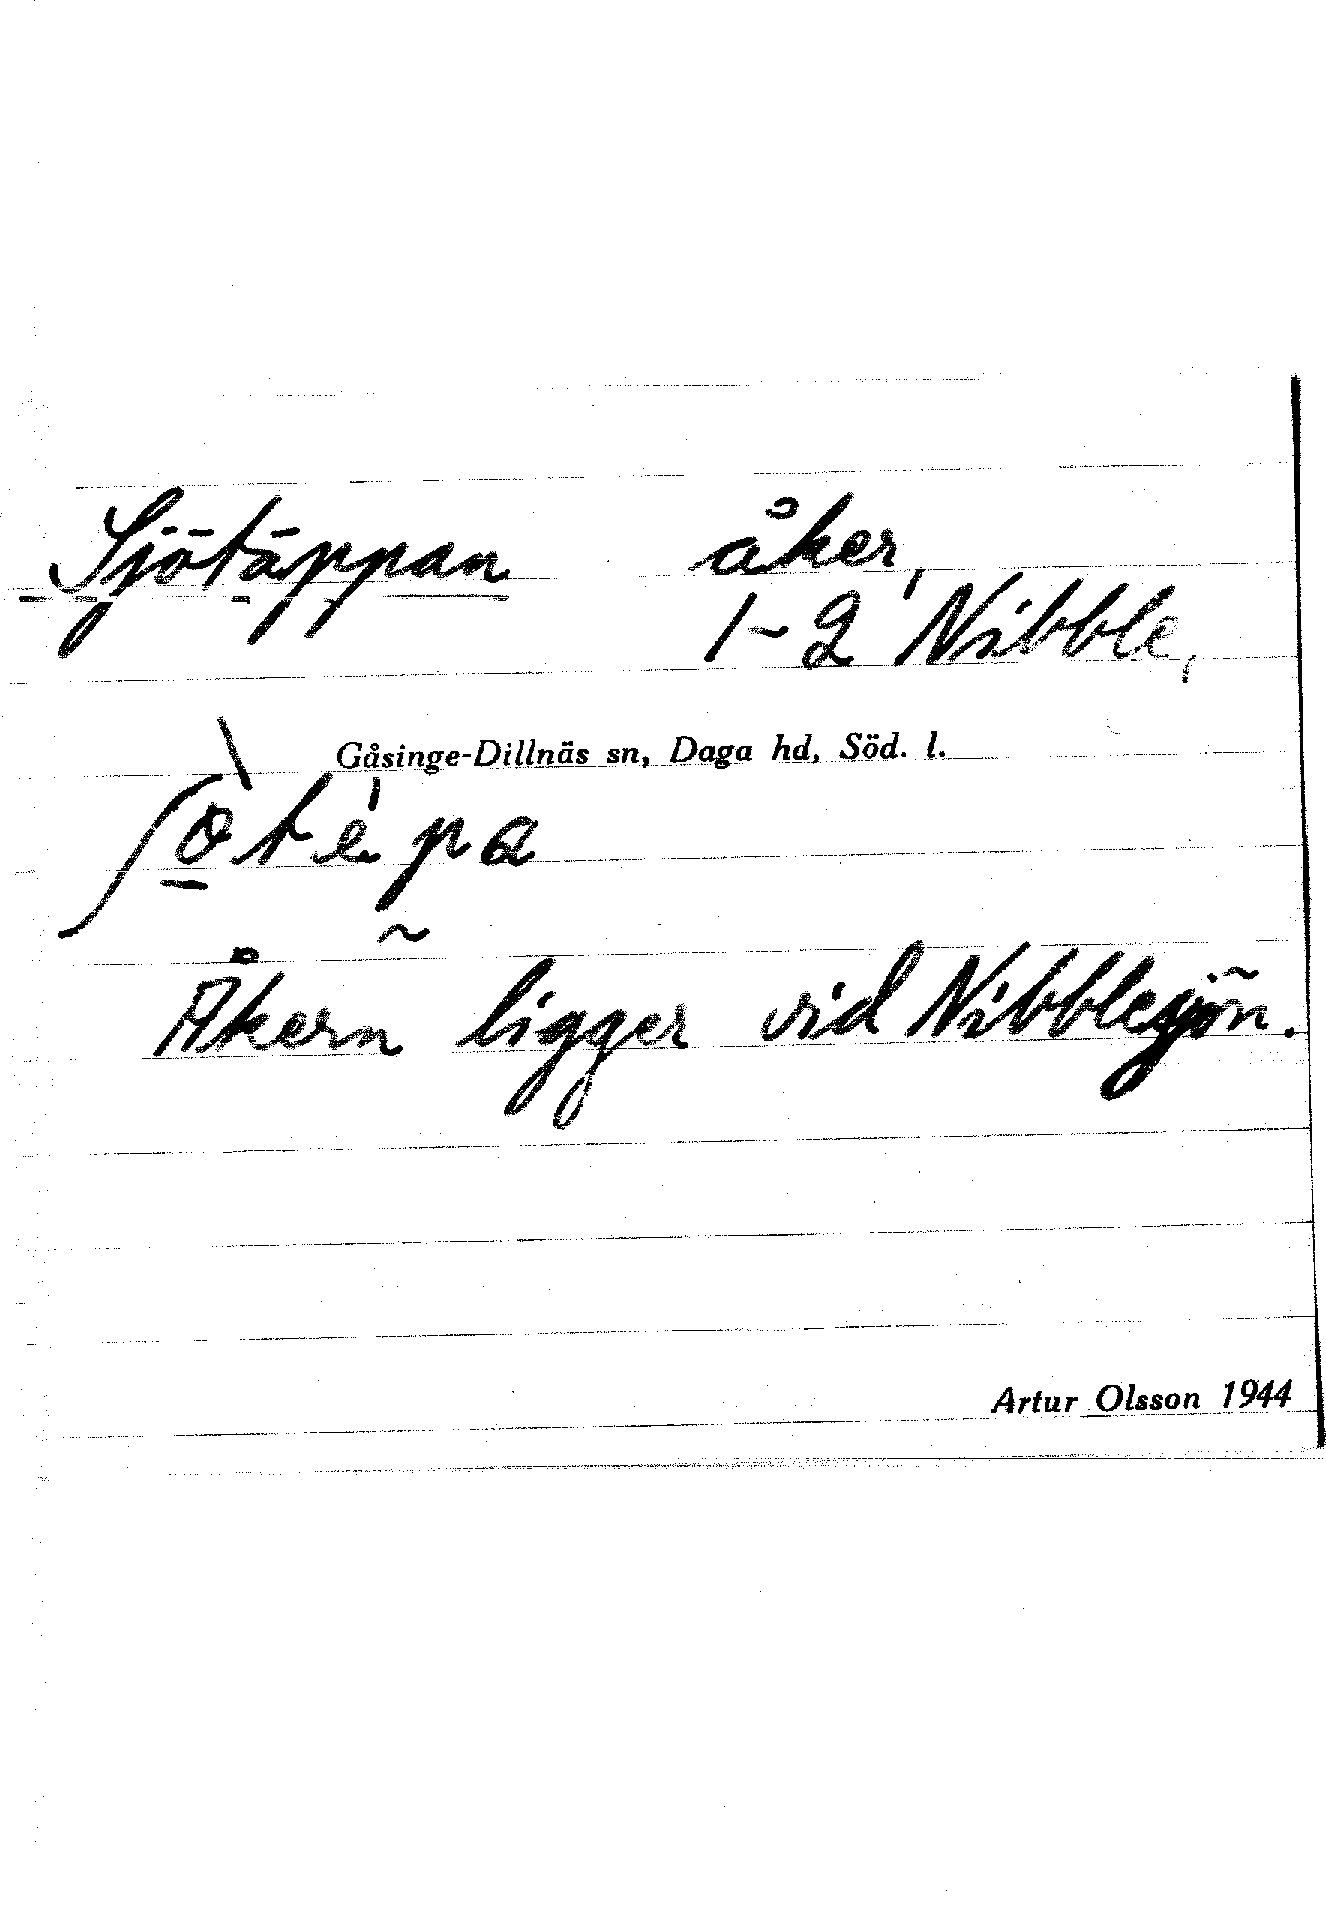 Sjötäppan åker,
1-2 Nibble,
Gåsinge-Dillnäs sn, Daga hd, Söd. l.
ʃò̱tépa
Åkern ligger vid Nibblesjön.
Artur Olsson 1944